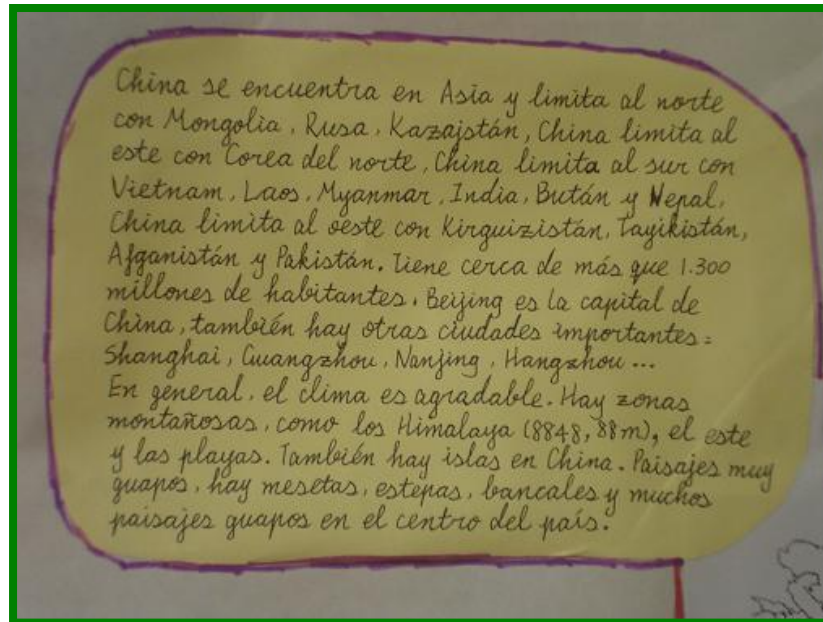 China se encuentra en Asia y limita al norte
con Mongolia, Rusa, Kazajstán, China limita al
este con Corea del norte, China limita al sur con
Vietnam, Laos, Myanmar, India, Bután y Nepal,
China limita al oeste con Kirguizistán, Tayikistán,
Afganistán y Pakistán. Tiene cerca de más que 1.300
millones de habitantes. Beijing es la capital de
China, también hay otras ciudades importantes:
Shanghai, Guangzhou, Nanjing, Hangzhou ...
En general, el clima es agradable. Hay zonas
montañosas, como los Himalaya (8848,88m), el este
y las playas. También hay islas en China. Paisajes muy
guapos, hay mesetas, estepas, bancales y muchos
paisajes guapos en el centro del país.